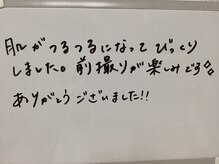 肌がつるつるになってびっくり
しました。前撮りが楽しみでる✧
ありがとうございました!!